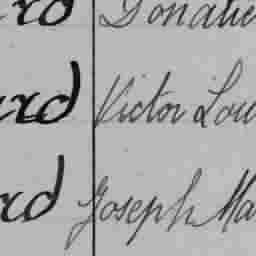 rd Donatie
ard Victor Lou
rd Joseph Ma